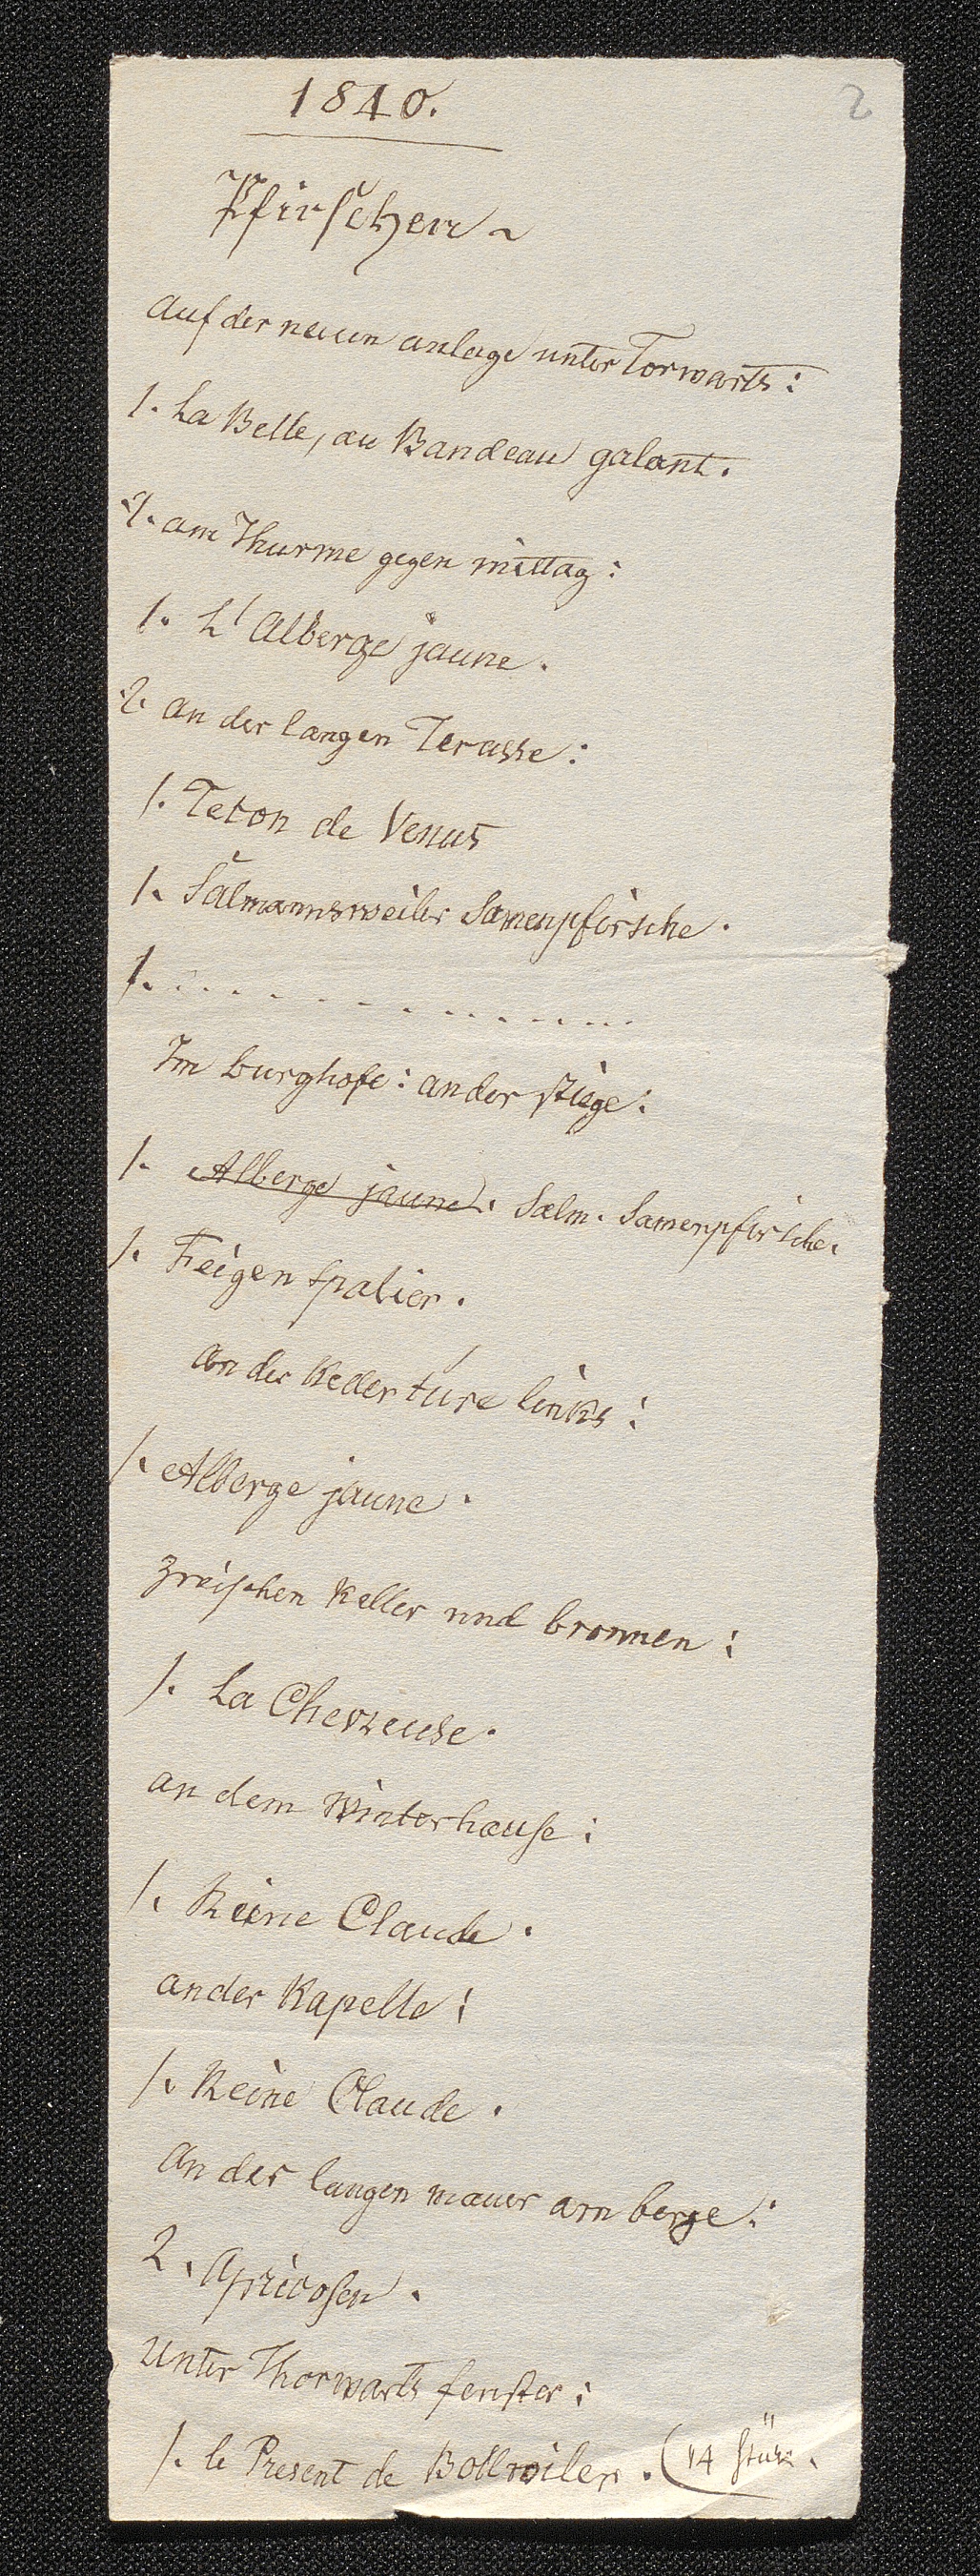 2
1840.
Pfirschen
auf der neuen anlage unter Torwarts:
1. La Belle, au Bandeau galant.
2. am Thurme gegen mittag:
1. L'Alberge jaune.
2. an der langen Terasse:
1. Teton de Venus
1. Salmannsweiler Samenpfirsche.
1. . . . . . . . . . . . . .
Im burghofe: an der stiege:
1. Alberge jaune. Salm. Samenpfirsche.
1. Feigen spalier.
an der Keller türe links:
1. Alberge jaune.
zwischen Keller und bronnen:
1. La Chevreuse.
an dem Winterhause:
1. Reine Claude.
an der Kapelle:
1. Reine Claude.
an der langen mauer am berge:
2. Apricosen.
unter Thorwarts fenster:
1. le Present de Bollwiler. (14 stük.